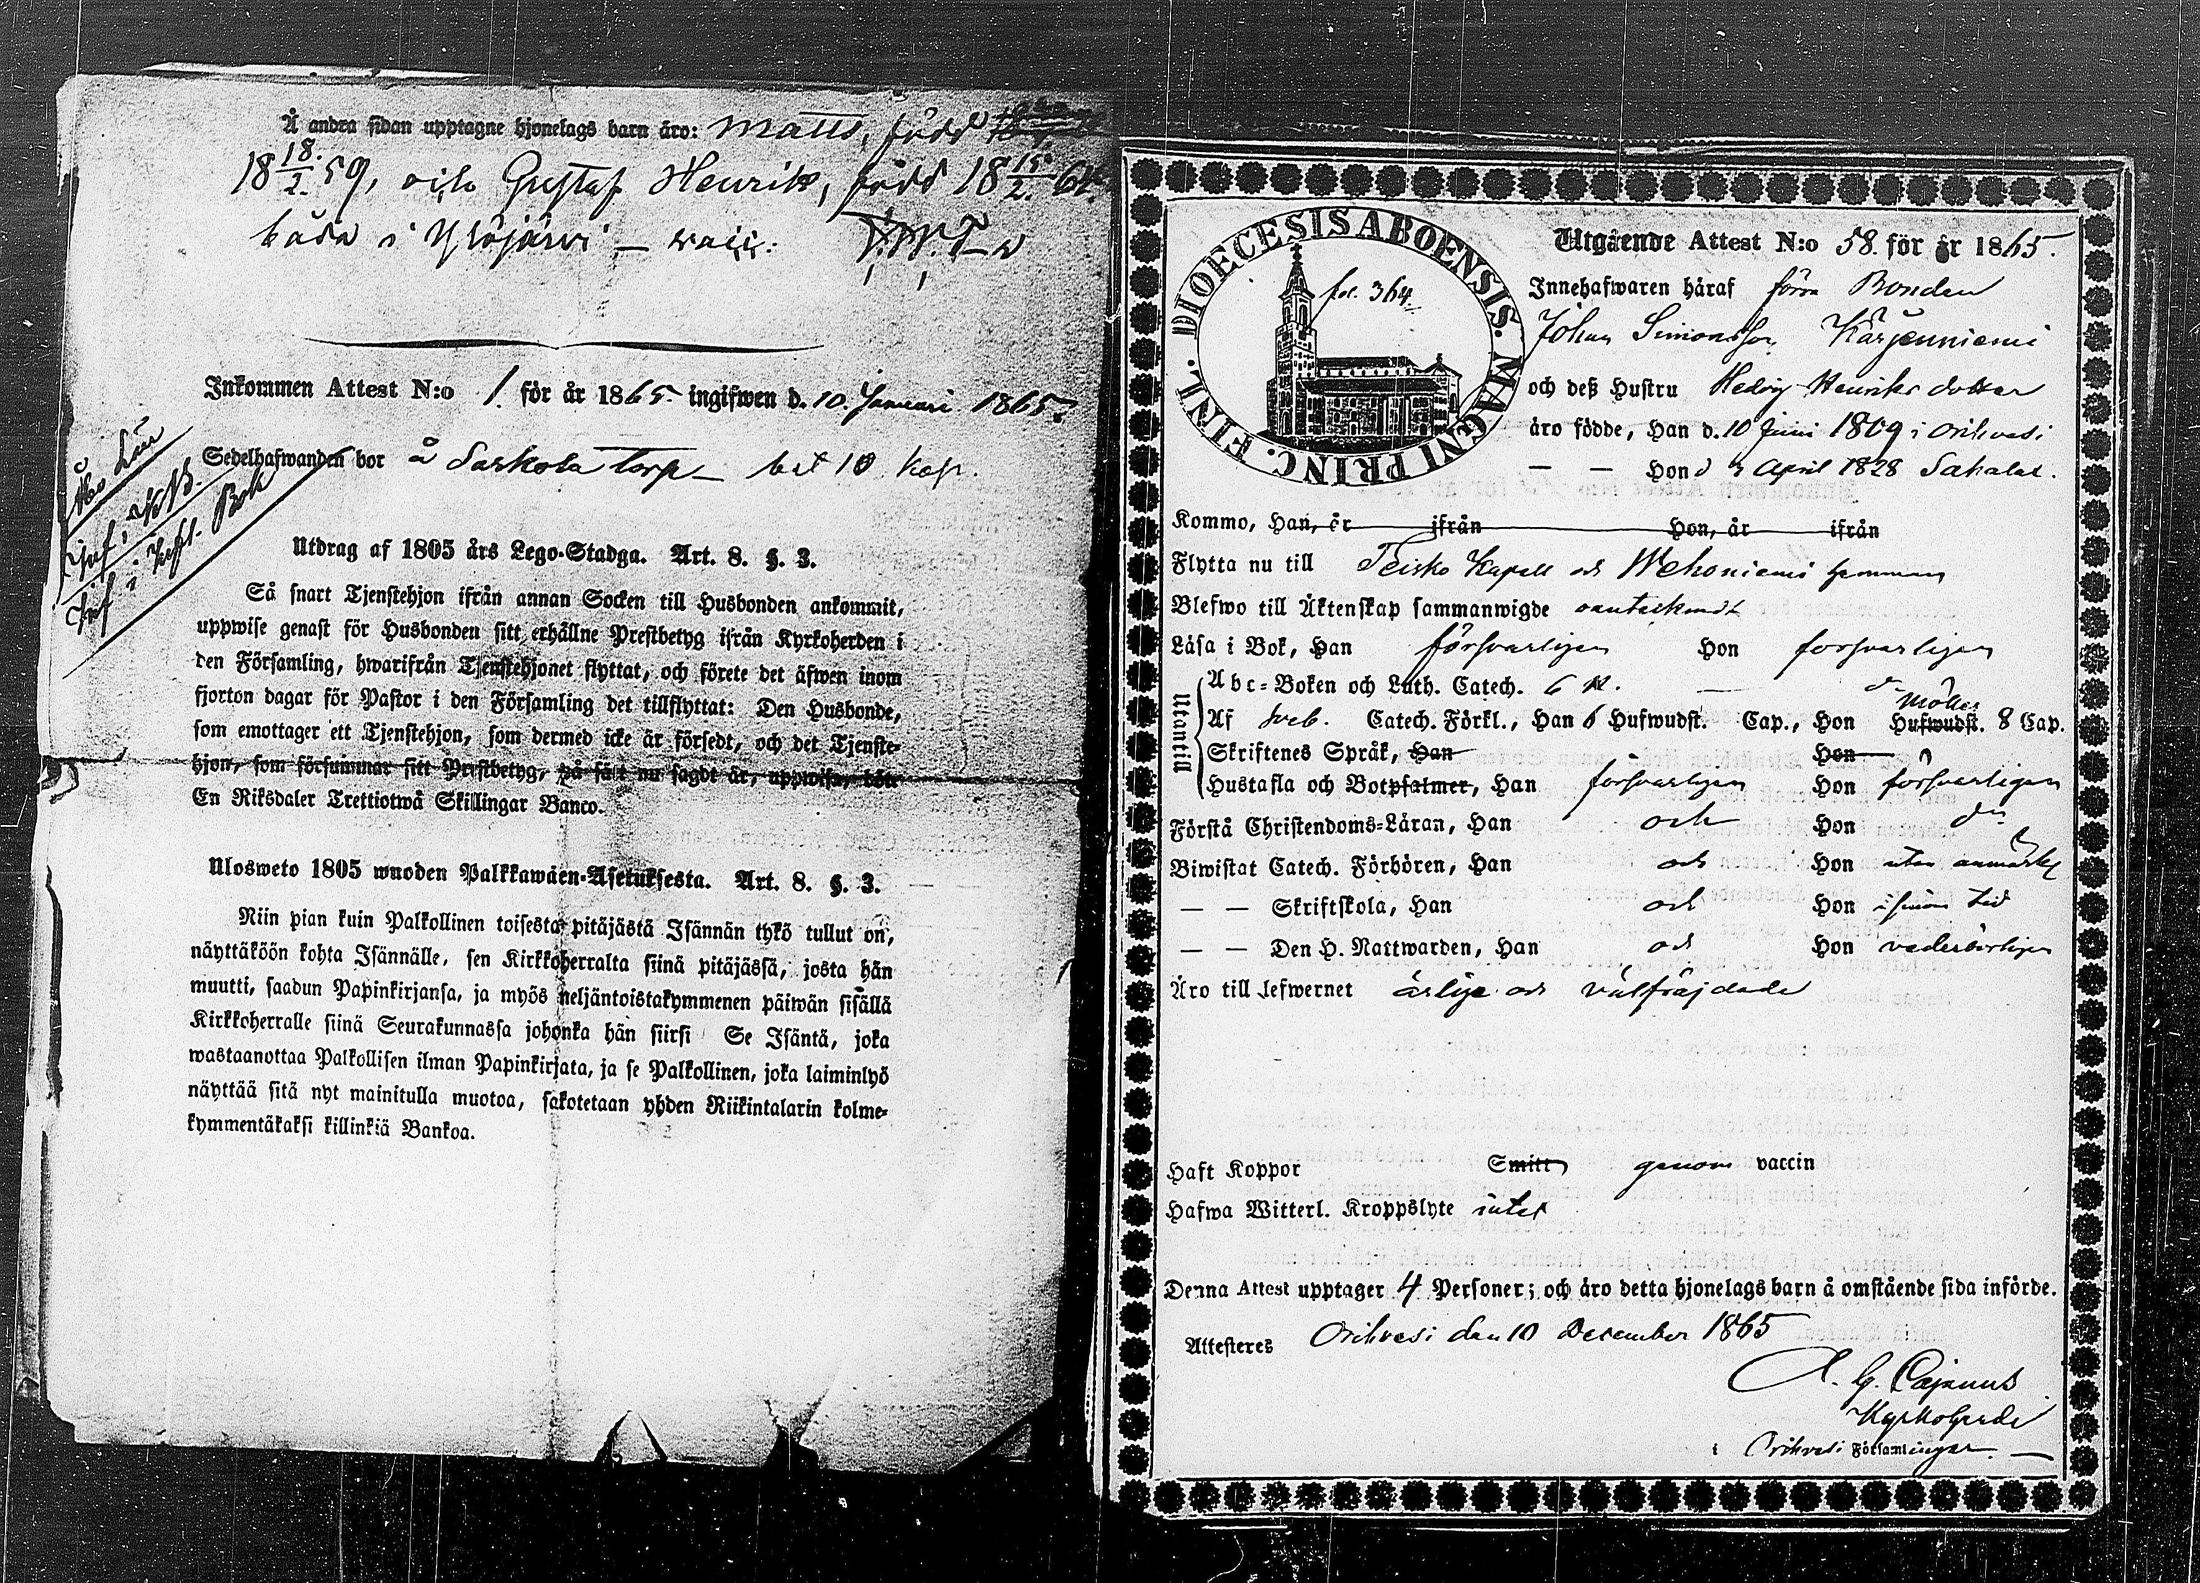 Å andra sidan upptagne hjonelags barn äro: Matts, född
18 18/2 59, och Gustaf Henrik, född 18 15/2 64.
båda i Ylöjärvi – vacc:
Inkommen Attest N:o 1. för år 1865. ingifwen d. 10. Januari 1865.
Sedelhafwanden bor å Saskola torp
Inf. i K.B.
Bok
Utdrag af 1805 års Lego-Stadga. Art. 8. §. 3.
Så snart Tjenstehjon ifrån annan Socken till Husbonden ankommit,
uppwise genast för Husbonden sitt erhållne Prestbetyg ifrån Kyrkoherden i
den Församling, hwarifrån Tjenstehjonet flyttat, och förete det äfwen inom
fjorton dagar för Pastor i den Församling det tillflyttat: Den Husbonde,
som emottager ett Tjenstehjon, som dermed icke är försedt, och det Tjenste-
hjon, som försummar sitt Prestbetyg, på sätt nu sagdt är, uppwisa, böte
En Riksdaler Trettiotwå Skillingar Banco.
Ulosweto 1805 wuoden Palkkawäen-Asetuksesta. Art. 8. §. 3.
Niin pian kuin Palkollinen toisesta pitäjästä Isännän tykö tullut on,
näyttäköön kohta Isännälle, sen Kirkkoherralta siinä pitäjässä, josta hän
muutti, saadun Papinkirjansa, ja myös neljäntoistakymmenen päiwän sisällä
Kirkkoherralle siinä Seurakunnassa johonka hän siirsi Se Isäntä, joka
wastaanottaa Palkollisen ilman Papinkirjata, ja se Palkollinen, joka laiminlyö
näyttää sitä nyt mainitulla muotoa, sakotetaan yhden Riikintalarin kolme-
kymmentäkaksi killinkiä Bankoa.
DIOECESIS ABOENSIS. MAGNI PRINC. FINL.
fol. 364.
Utgående Attest N:o 58. för år 1865.
Innehafwaren häraf förra Bonden
Johan Simonsson Kärjenniemi
och deß Hustru Hedvig Henriksdotter
äro födde, Han d. 10 Juni 1809 i Orihvesi
— — Hon d 3 April 1828 Sahalax.
Kommo, Han, år ifrån Hon, år ifrån
Flytta nu till Teisko Kapell och Wehoniemi hemman
Blefwo till Äktenskap sammanwigde oantecknadt
Läsa i Bok, Han försvarligen Hon försvarligen
Utantill
Abc-Boken och Luth. Catech. 6 st.
Af Sveb. Catech. Förkl., Han 6 Hufwudst. Cap., Hon Möller Hufwudst. 8 Cap.
Skriftenes Språk, Han Hon
Hustafla och Botpsalmer, Han försvarligen Hon försvarligen
Förstå Christendoms-Läran, Han och Hon do
Biwistat Catech. Förhören, Han och Hon utan anmärkn
— — Skriftskola, Han och Hon i sinom tid
— — Den H. Nattwarden, Han och Hon vederbörligen
Äro till lefwernet ärlige och välfräjdade
Haft Koppor Smitt genom vaccin
Hafwa Witterl. Kroppslyte intet
Denna Attest upptager 4 Personer; och äro detta hjonelags barn å omstående sida införde.
Attesteres Orihvesi den 10 December 1865
A. G. Cajanus
Kyrkoherde
i Orihvesi Församlingar.